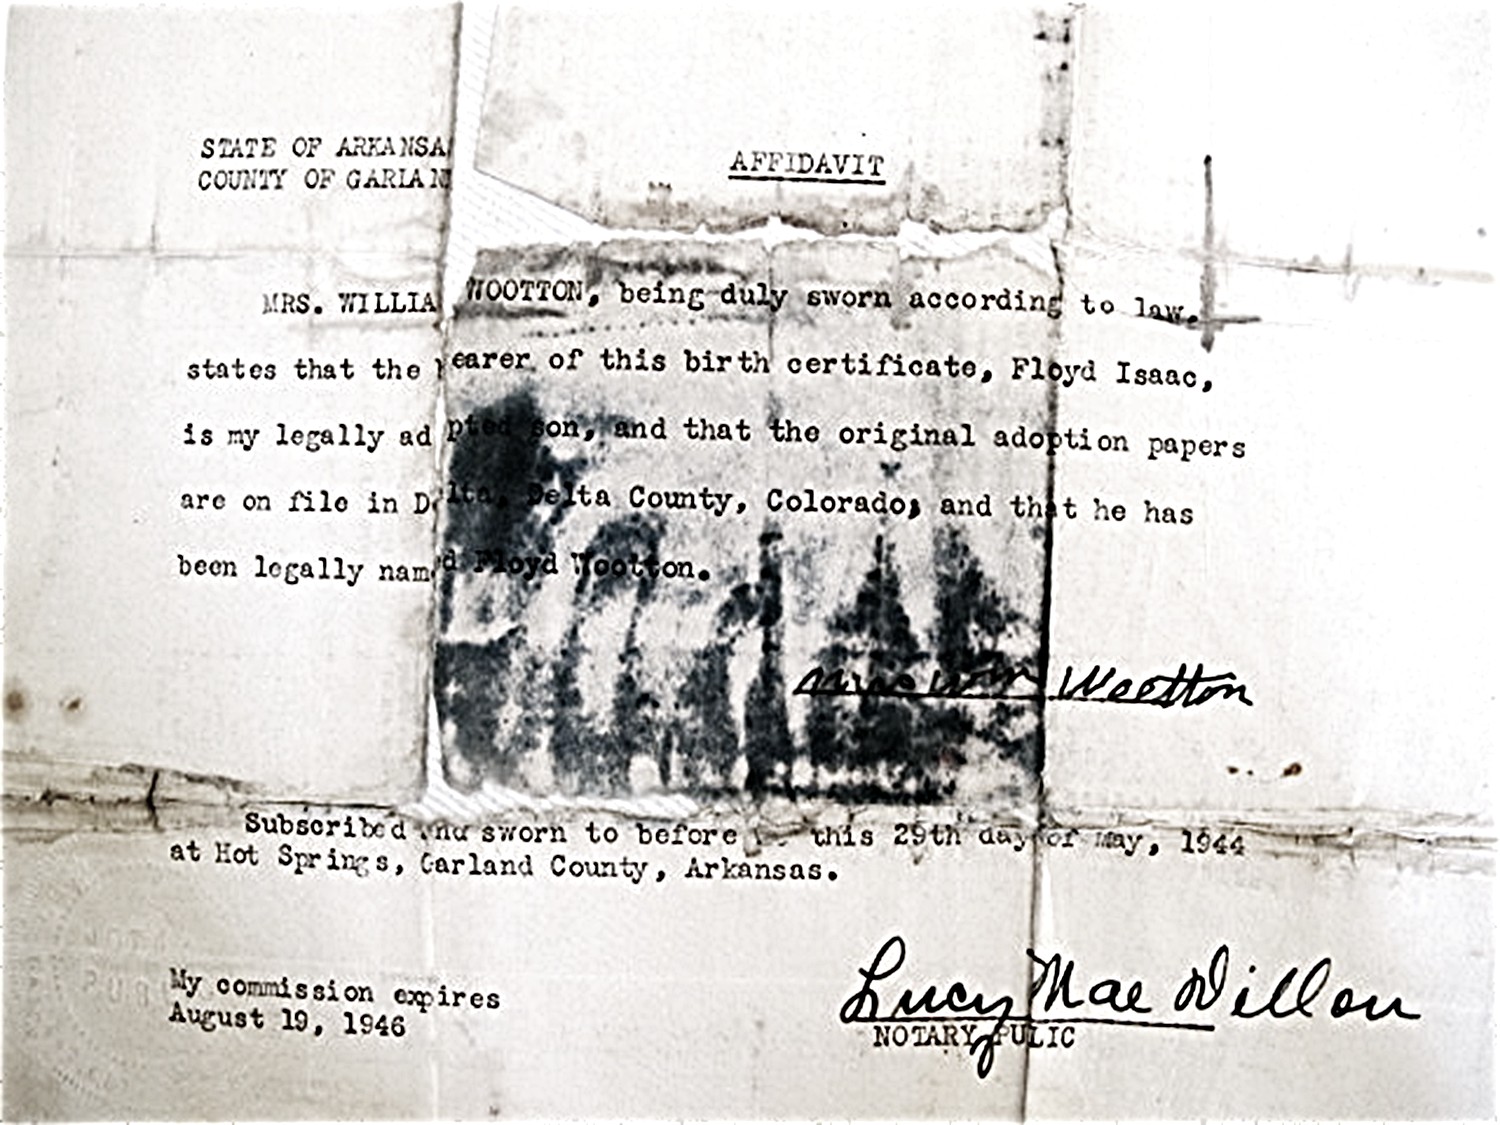 STATE OF ARKANSA
COUNTY OF GARLAN
AFFIDAVIT
MRS. WILLIA WOOTTON, being duly sworn according to law,
states that the earer of this birth certificate, Floyd Isaac,
is my legally ad pted son, and that the original adoption papers
are on file in Delta, Delta County, Colorado; and that he has
been legally named Floyd Wootton.
Mrs Wm Wootton
Subscribed and sworn to before this 29th day of May, 1944
at Hot Springs, Garland County, Arkansas.
My commission expires
August 19, 1946
Lucy Mae Dillon
NOTARY PULIC